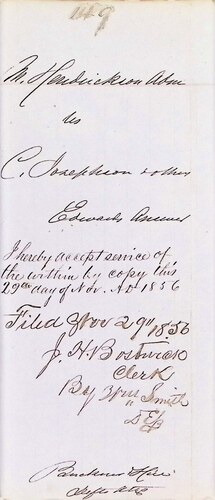 M. Hendrickson Adm
vs
C. Josephson & others
Edwards Answer
I hereby accept service of
the within by copy this
29th day of Nov. A.D. 1856
Filed Nov 29" 1856
J. H. Bostwick
Clerk
By Wm Smith
D Clk